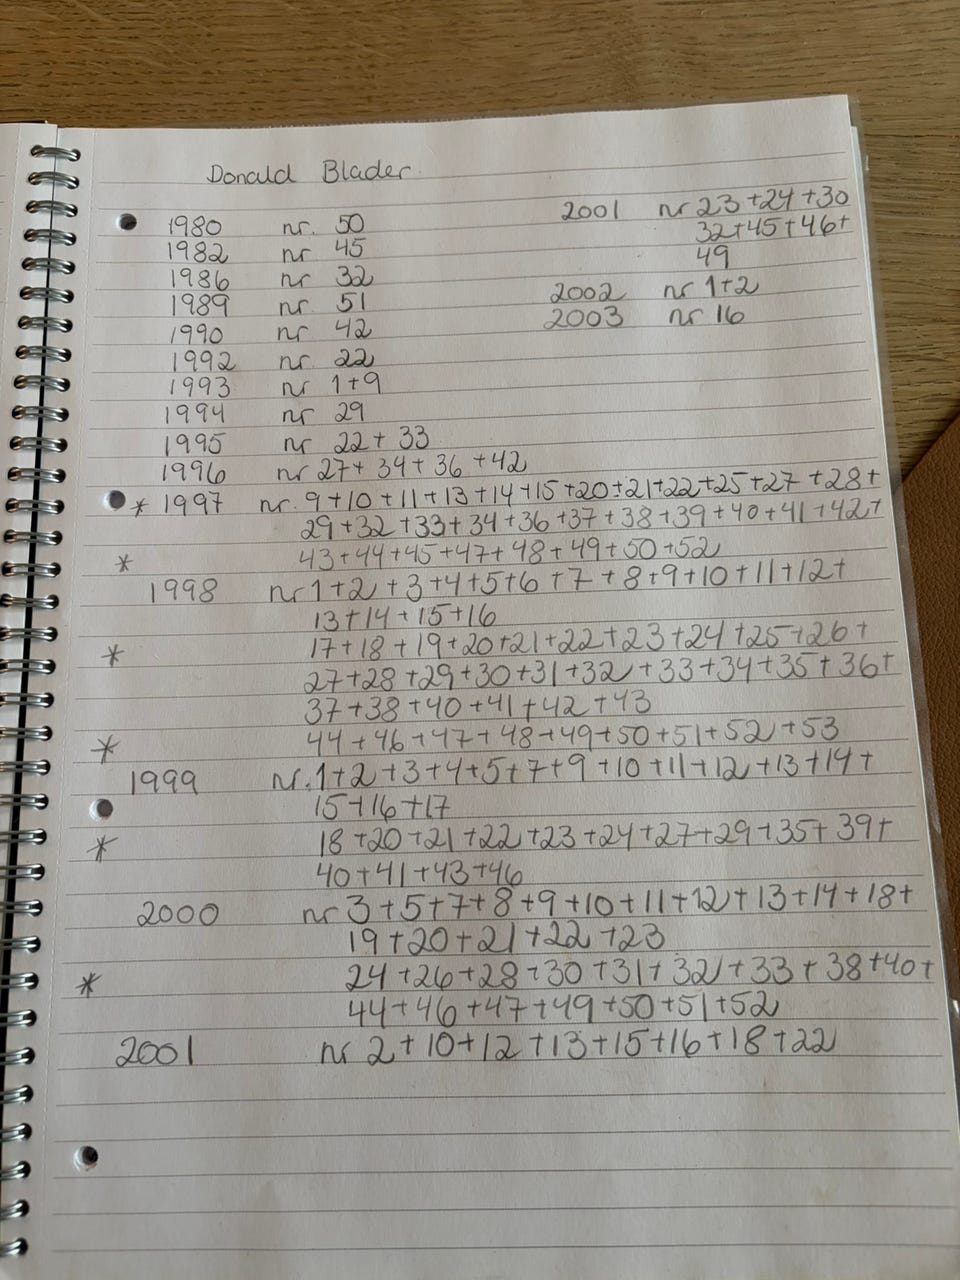 Donald Blader.
1980 nr. 50
1982 nr 45
1986 nr 32
1989 nr. 51
1990 nr 42
1992 nr. 22
1993 nr 1+9
1994 nr 29
1995 nr 22+ 33
1996 nr 27+ 34+ 36 +42
* 1997 nr. 9+10+11+13+14+15+20+21+22+25+27 +28+
29+32+33+34+36+37+38+39+40+41+42+
* 43+44+45+47+48+49+50+52
1998 nr 1+2+3+4+5+6+7+8+9+10+11+12+
13+14+15+16
* 17+18+19+20+21+22+23+24+25+26+
27+28+29+30+31+32+33+34+35+36+
37+38+40+41+42+43
* 44+46+47+48+49+50+51+52+53
1999 nr. 1+2+3+4+5+7+9+10+11+12+13+14+
15+16+17
* 18+20+21+22+23+24+27+29+35+39+
40+41+43+46
2000 nr 3+5+7+8+9+10+11+12+13+14+18+
19+20+21+22+23
* 24+26+28+30+31+32+33+38+40+
44+46+47+49+50+51+52
2001 nr 2+10+12+13+15+16+18+22
2001 nr 23+24+30
32+45+46+
49
2002 nr 1+2
2003 nr 16